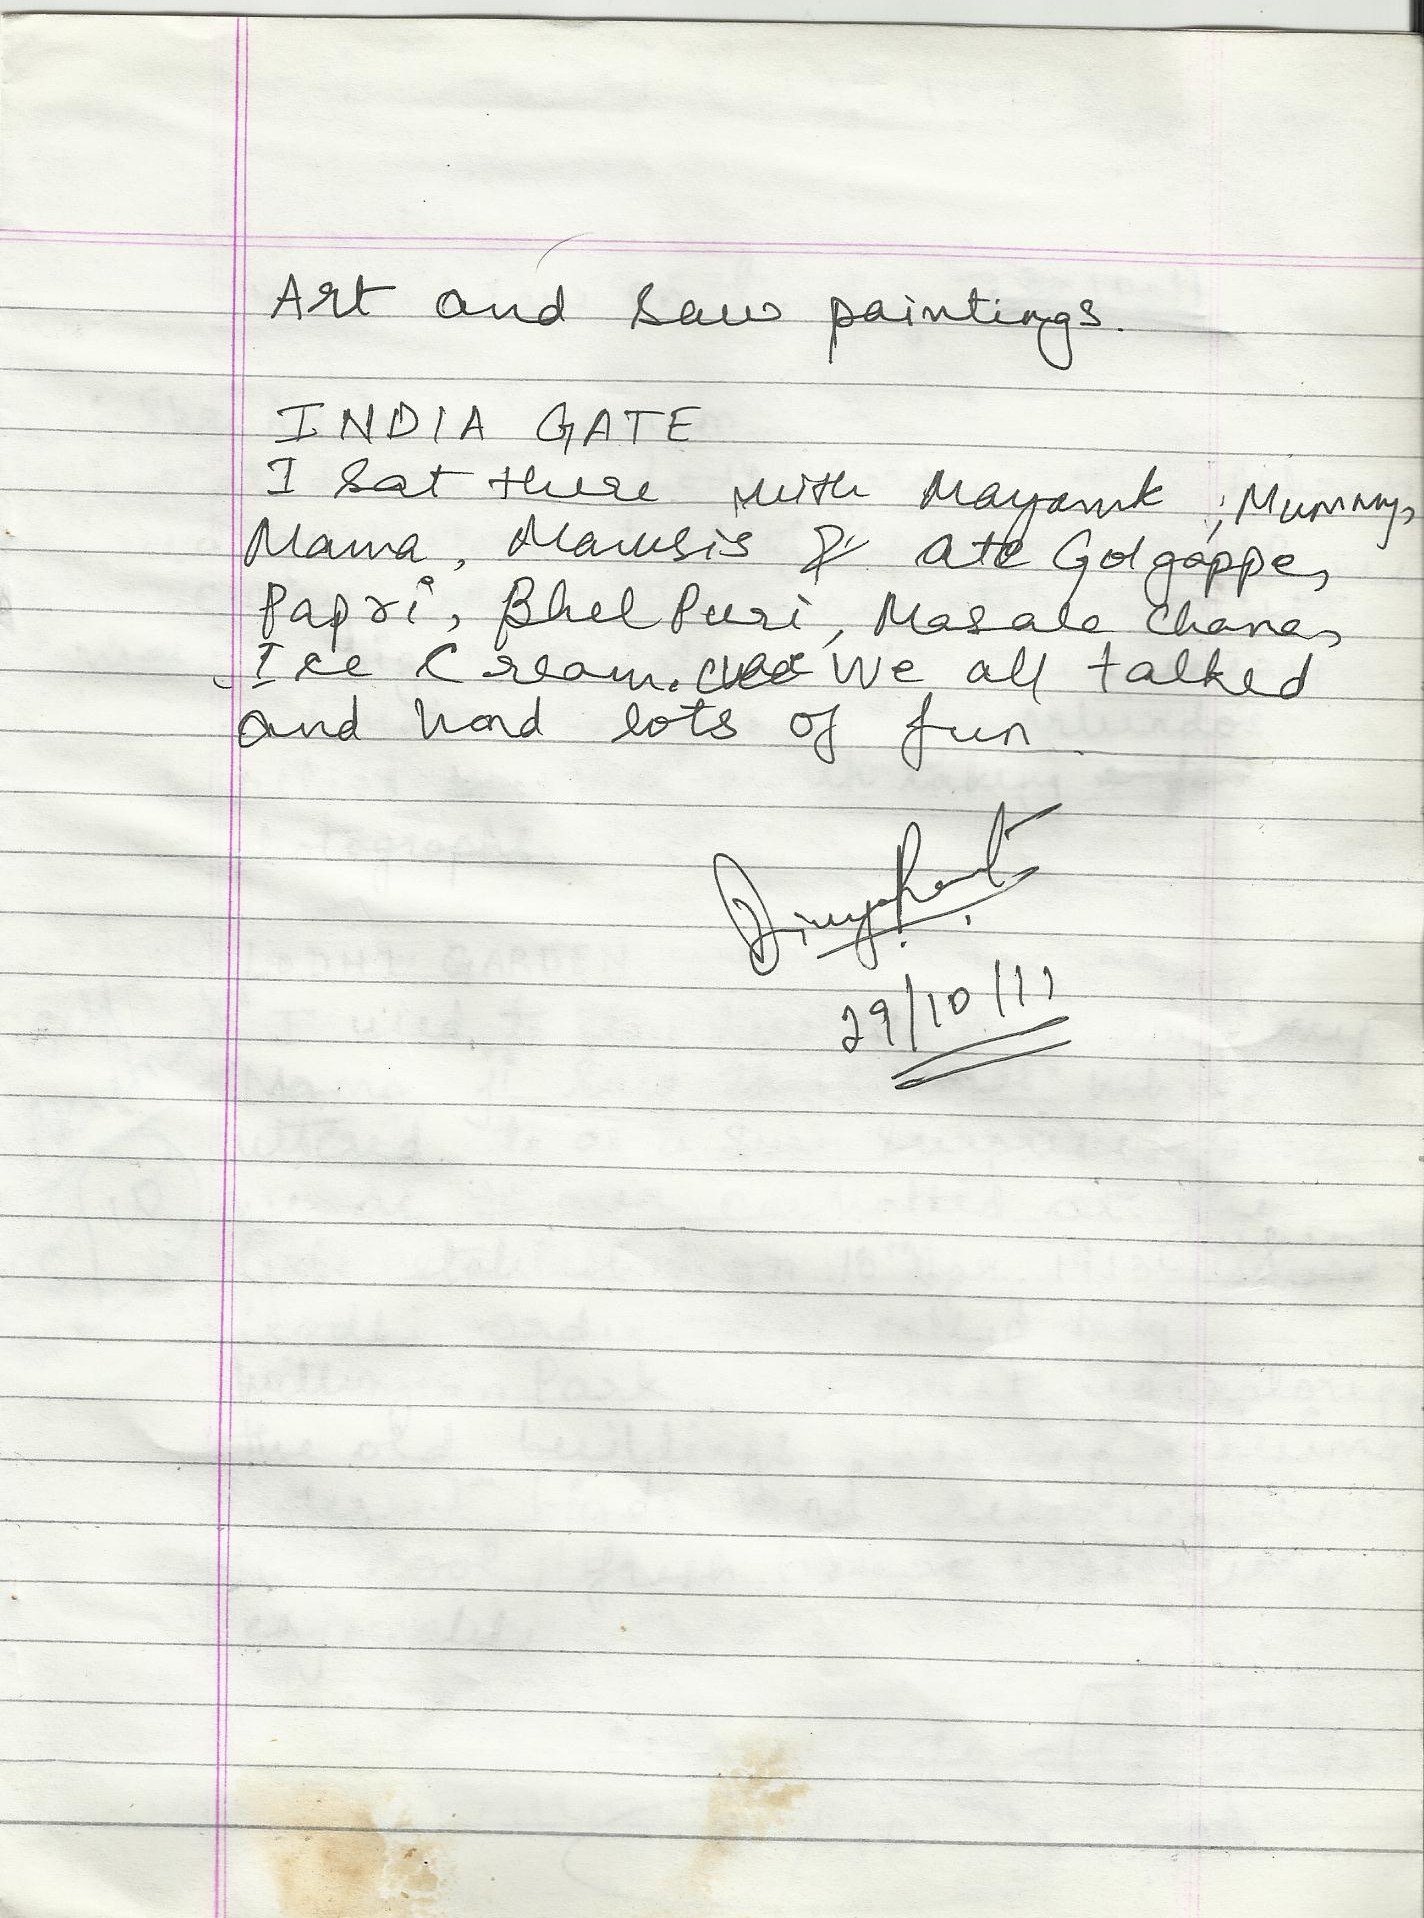 Art and saw paintings.
INDIA GATE
I sat there with Mayank, Mummy,
Mama, Mausis & ate Golgappe,
Papri, Bhel Puri, Masala Chana,
Ice Cream. We all talked
and had lots of fun.
29/10/11